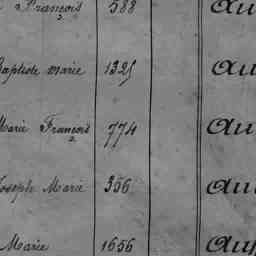 François 588 Au
Baptiste Marie 1325 Au
Marie François 774 Au
Joseph Marie 356 Au
Marie 1656 Au